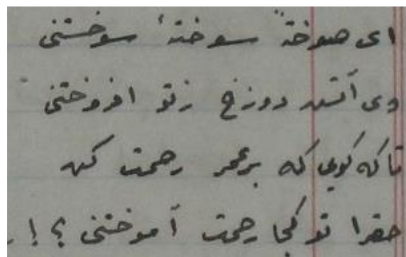 ای صوختهٔ سوختهٔ سوختنی
وی آتش دوزخ ز تو افروختنی
تا کی گویی که بر عمر رحمت کن
حقرا تو کجا رحمت آموختنی؟!